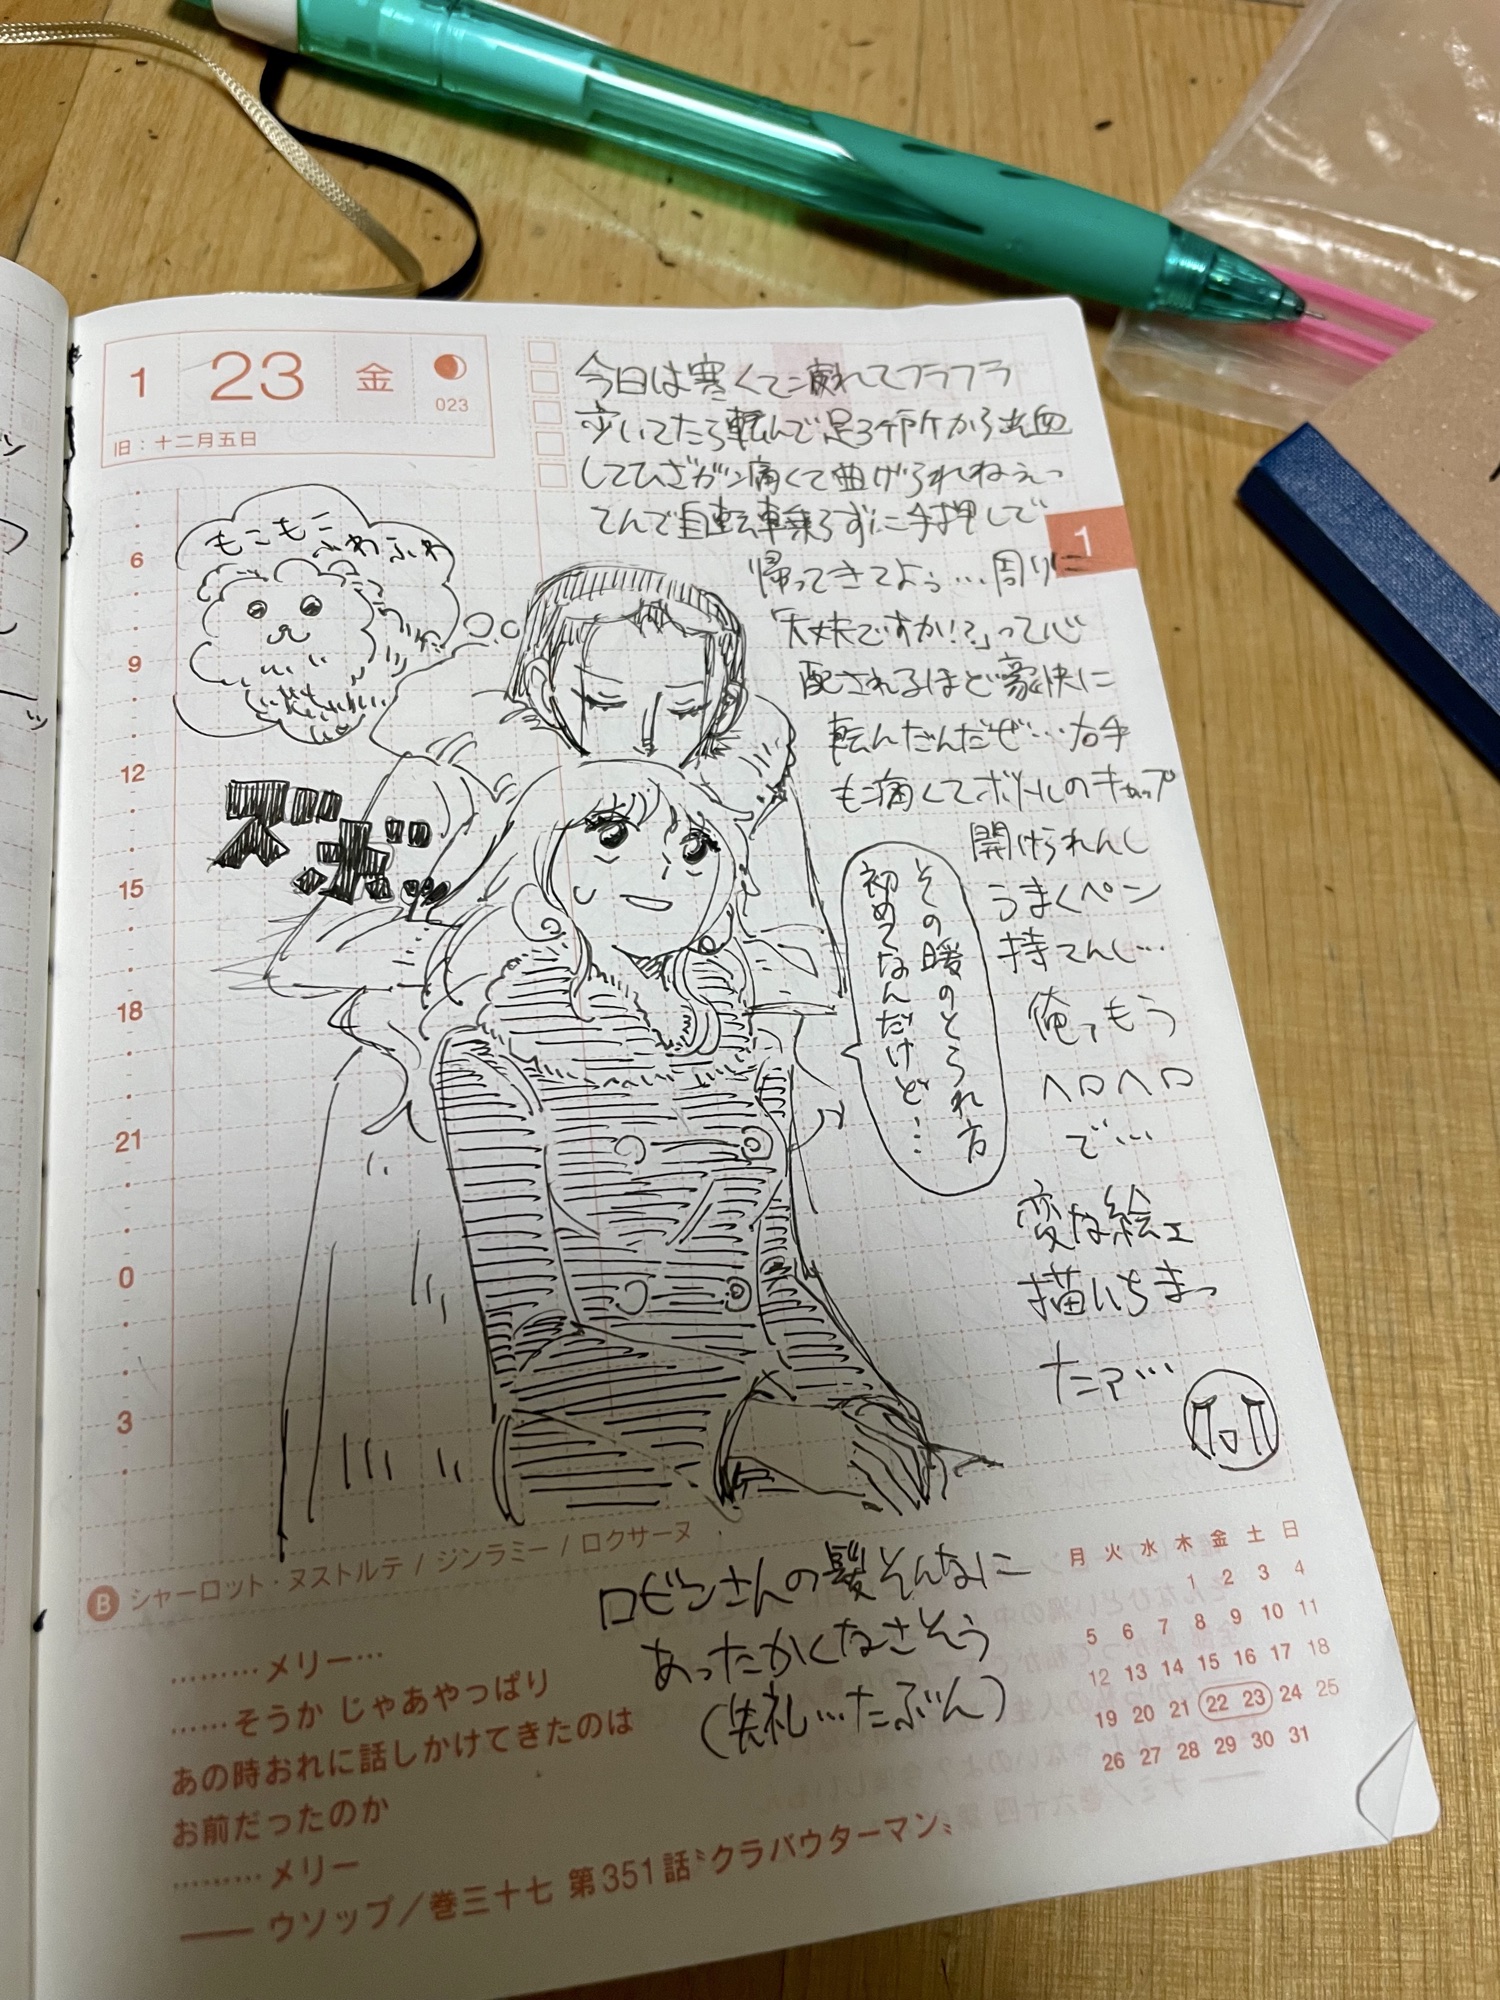 1 23 金
023
旧：十二月五日
今日は寒くて疲れてフラフラ
歩いてたら転んで足3ヶ所から出血
してひざガン痛くて曲げられねぇっ
てんで自転車乗らずに手押しで
帰ってきてよぅ…周りに
「大丈夫ですか!?」って心
配されるほど豪快に
転んだんだぜ…右手
も痛くてボトルのキャップ
開けられんし
うまくペン
持てんし…
俺ァもう
ヘロヘロ
で…
変な絵ェ
描いちまっ
たァ…
1
もこもこ
ふわふわ
ズボッ
その暖のとられ方
初めてなんだけど…
6
9
12
15
18
21
0
3
B シャーロット・ヌストルテ / ジンラミー / ロクサーヌ
ロビンさんの髪そんなに
あったかくなさそう
(失礼…たぶん)
………メリー…
……そうか じゃあやっぱり
あの時おれに話しかけてきたのは
お前だったのか
………メリー
── ウソップ／巻三十七 第351話〝クラバウターマン〟
月 火 水 木 金 土 日
1 2 3 4
5 6 7 8 9 10 11
12 13 14 15 16 17 18
19 20 21 22 23 24 25
26 27 28 29 30 31